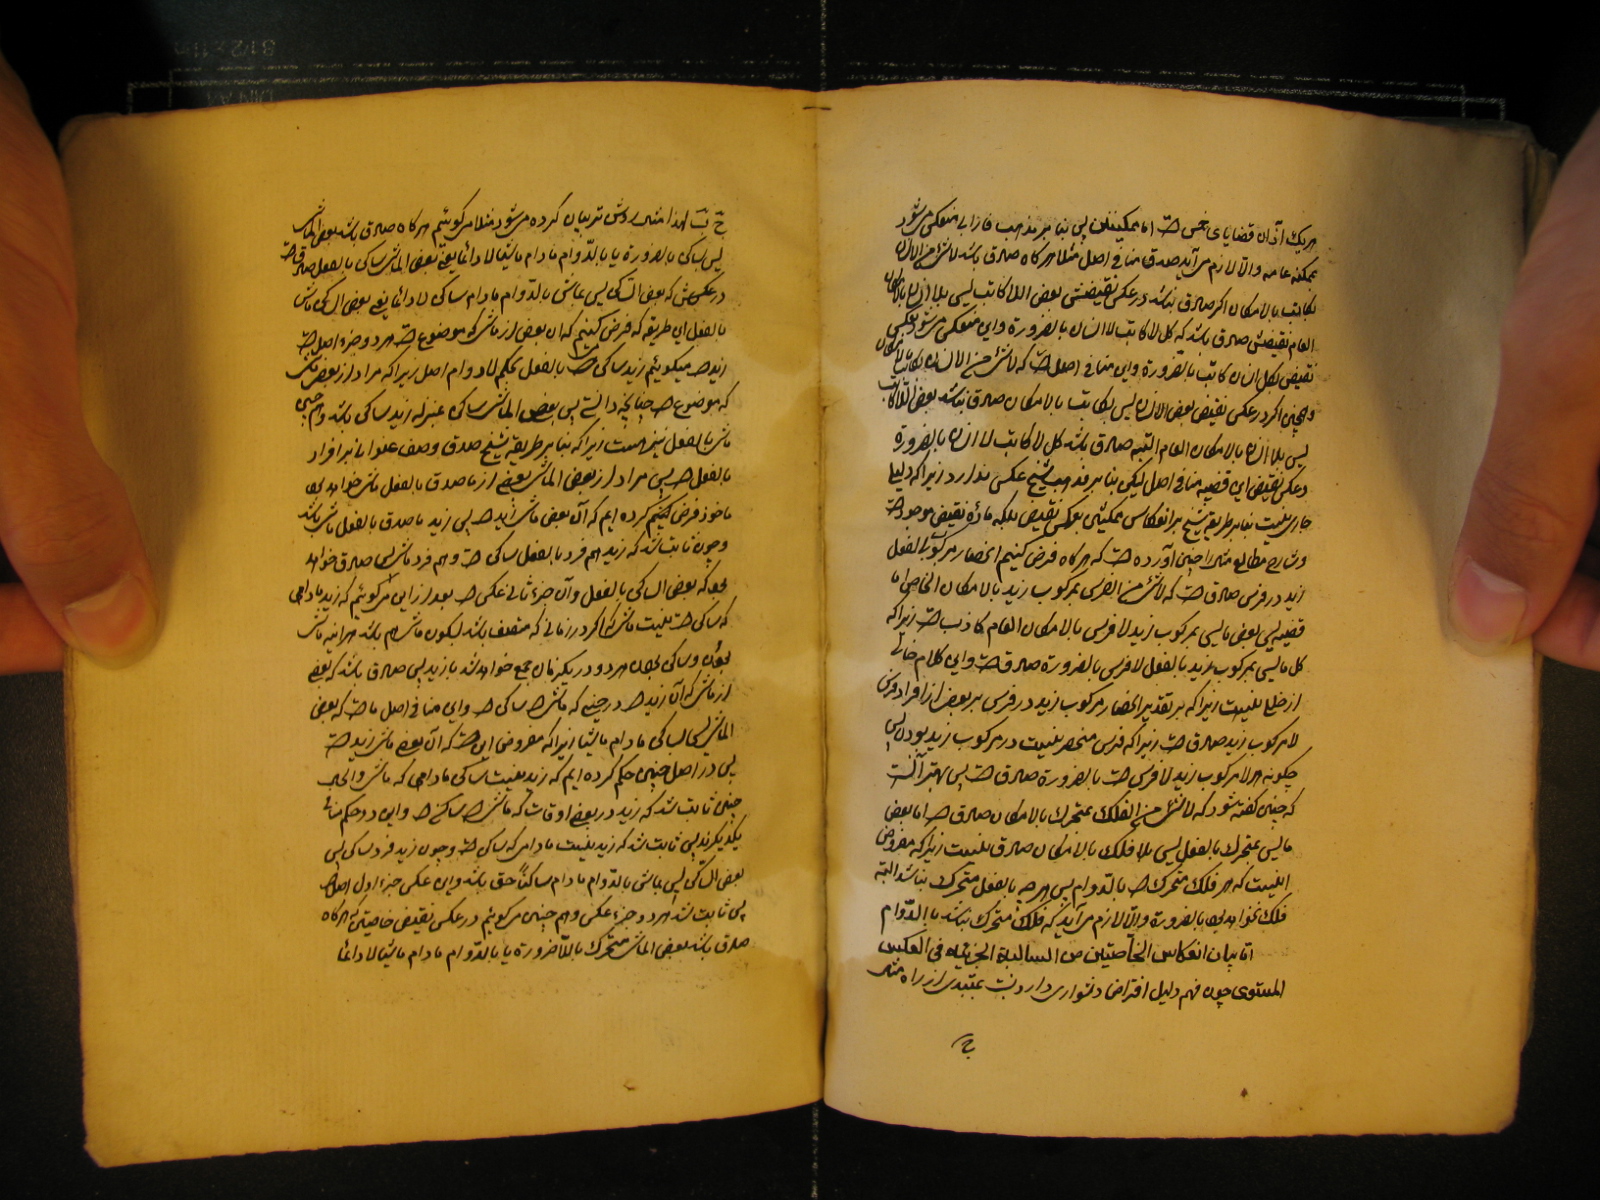 هریک ازان قضایای خمس است اما ممکنتین پس بنا بر مذهب فارابی منعکس می شود
ممکنه عامه والا لازم می آید صدق منافی اصل مثلا هرگاه صادق باشد لا شئ من الانسان
بکاتب بالامکان اگر صادق نباشد در عکس نقیضش بعض اللا کاتب لیس بلا انسان بالامکان
العام نقیضش صادق باشد که کل لا کاتب لا انسان بالضرورة واین منعکس می شود بعکس
نقیض بکل انسان کاتب بالضرورة واین منافی اصل است که لا شئ من الانسان بکاتب بالامکان
وهمچنین اگر در عکس نقیض بعض الانسان لیس بکاتب بالامکان صادق نباشد بعض اللا کاتب
لیس بلا انسان بالامکان العام البته صادق باشد کل لا کاتب لا انسان بالضرورة
وعکس نقیض این قضیه منافی اصل لیکن بنا بر مذهب شیخ عکس ندارد زیرا که دلیلی
جاری نیست بنا بر طریقه شیخ بر انعکاس ممکنتین بعکس نقیض بلکه ماده نقیض موجود است
وشارح مطالع مثلا چنین آورده است که هرگاه فرض کنیم انحصار مرکوب بالفعل
زید در فرس صادق است که لا شئ من الفرس بمرکوب زید بالامکان الخاص اما
قضیه لیس بعض ما لیس بمرکوب زید لا فرس بالامکان العام کاذب است زیرا که
کل ما لیس بمرکوب زید بالفعل لا فرس بالضرورة صادق است واین کلام خالی
از خلل نیست زیرا که بر تقدیر انحصار مرکوب زید در فرس بر بعض از افراد فرس
لا مرکوب زید صادق است زیرا که فرس منحصر نیست در مرکوب زید بودن پس
چگونه هر لا مرکوب زید لا فرس است بالضرورة صادق است پس بهتر آنست
که چنین گفته شود که لا شئ من الفلک بمتحرک بالامکان صادق است اما بعض
ما لیس بمتحرک بالفعل لیس بلا فلک بالامکان صادق نیست زیرا که مفروض
اینست که هر فلک متحرک است بالدوام پس هرچه بالفعل متحرک نباشد البته
فلک نخواهد بود بالضرورة والا لازم می آید که فلک متحرک نباشد بالدوام
اما بیان انعکاس الخاصتین من السالبة الجزئیة فی العکس
المستوی چون فهم دلیل افتراض دشواری دارد نسبت بمبتدی از راه مثال
ج ب لهذا مثل روش تر بیان کرده می شود مثلا می گوئیم هرگاه صادق باشد بعض الماش
لیس بساکن بالضرورة یا بالدوام مادام ماشیا لا دائما یعنی بعض الماش ساکن بالفعل صادق است
در عکسش که بعض الساکن لیس بماش بالدوام مادام ساکن لا دائما یعنی بعض الساکن ماش
بالفعل این طریقه که فرض کنیم که آن بعض از ماش که موضوع است هر دو جزء اصل است
زید است میگوئیم زید ساکن است بالفعل بحکم لا دوام اصل زیرا که مراد از بعض ماش
که موضوع است چنانچه دانستی پس بعض الماش ساکن بمنزله زید ساکن باشد وهم چنین
ماش بالفعل نیز هست زیرا که بنا بر طریقه شیخ صدق وصف عنوانی بر افراد
بالفعل است پس مراد از بعض الماش بعضی از ما صدق بالفعل ماش خواهد بود
ماخوذ فرض کرده ایم که آن بعض ماش زید است پس زید ما صدق بالفعل ماش باشد
وچون ثابت شد که زید هم فرد بالفعل ساکن است وهم فرد ماش پس صادق خواهد
بود که بعض الساکن بالفعل وآن جزء ثانی عکس است بعد از این می گوئیم که زید مادامی
که ساکن است نیست ماش زیرا که اگر در زمانی که متصف باشد بسکون ماش هم باشد هر آینه ماش
بودن وساکن بودن هر دو در یک زمان جمع خواهد شد با زید پس صادق باشد که بعضی
از ماش که آن زید است در حینی که ماش است ساکن است واین منافی اصل ما است که بعض
الماش لیس بساکن مادام ماشیا زیرا که مفروض این است که آن بعض ماش زید است
پس در اصل چنین حکم کرده ایم که زید نیست ساکن مادامی که ماش والحال
چنین ثابت شد که زید در بعضی اوقات که ماش است ساکن است واین دو حکم منافی
یکدیگرند پس ثابت شد که زید نیست مادامی که ساکن است وچون زید فرد ساکن پس
بعض الساکن لیس بماش بالدوام مادام ساکنا حق باشد واین عکس جزء اول اصل است
پس ثابت شد هر دو جزء عکس وهم چنین می گوئیم در عکس نقیض خاصتین که هرگاه
صادق باشد بعض الماش متحرک بالضرورة یا بالدوام مادام ماشیا لا دائما